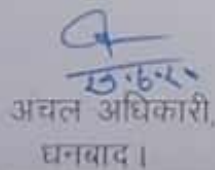 अचल अधिकारी,
धनबाद।